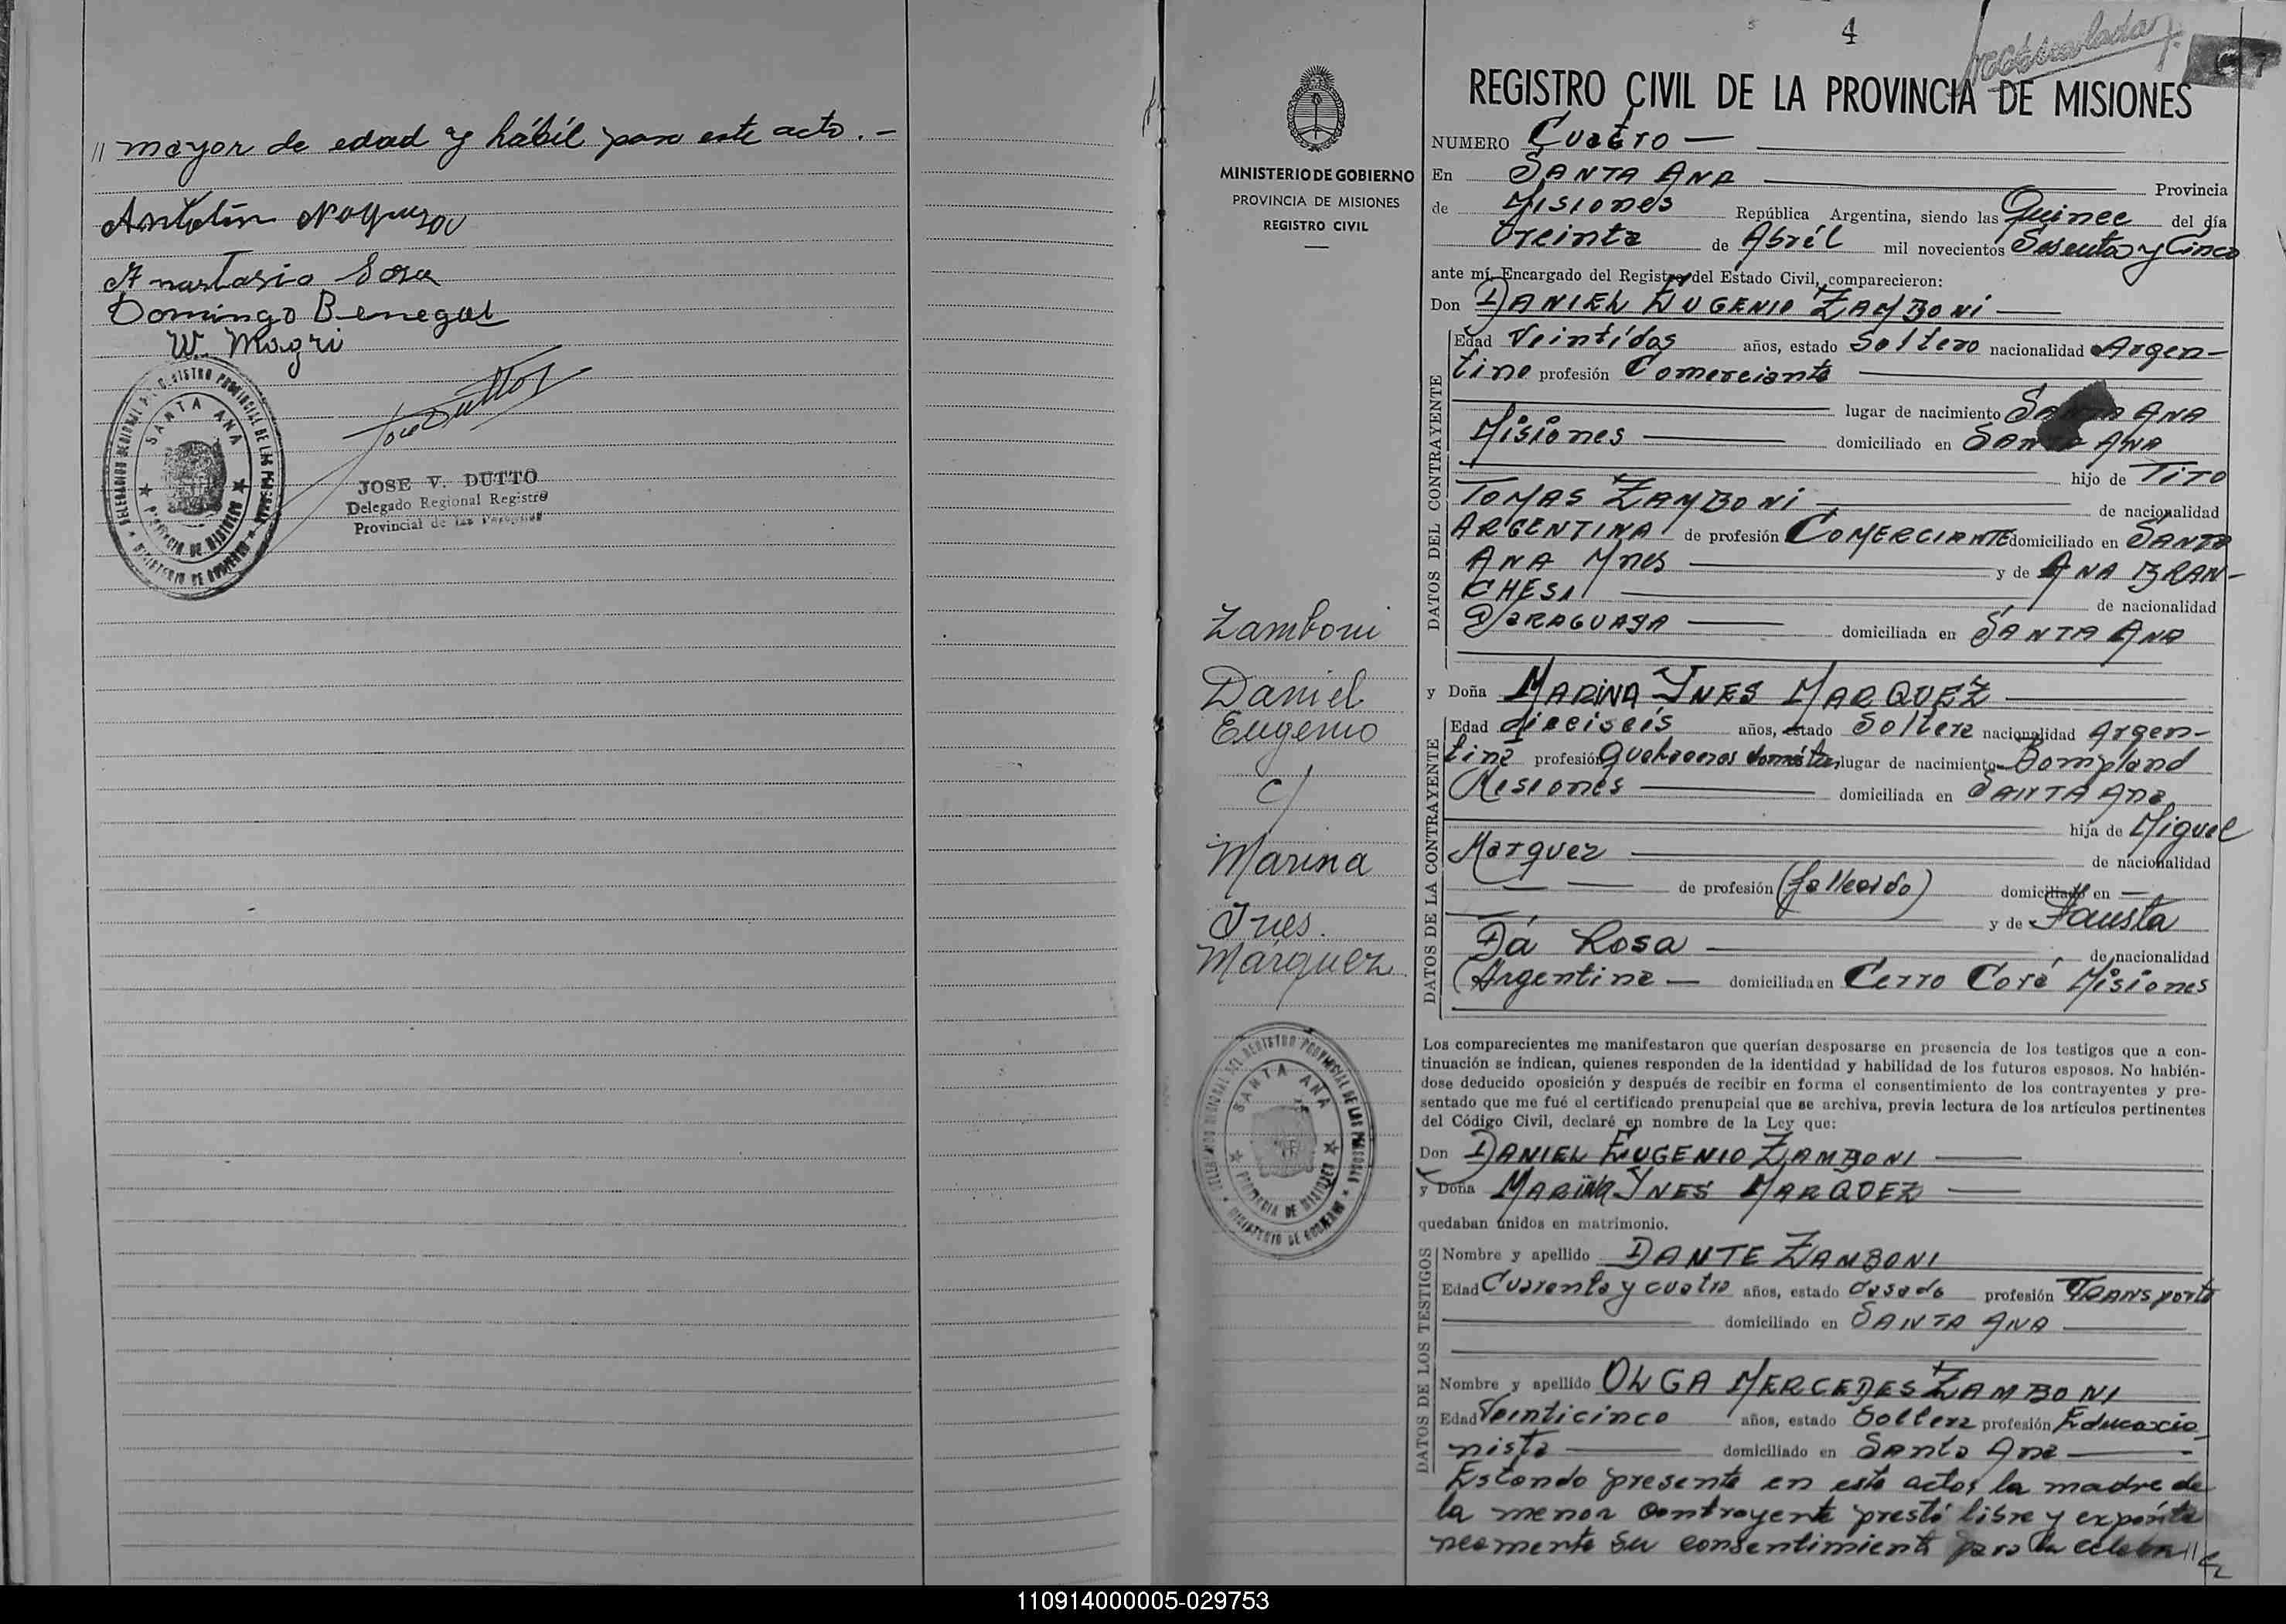 // mayor de edad y hábil para este acto. -
Antolín Noguera
Anastasio Sosa
Domingo Benegal
W. Magri
SANTA ANA
JOSE V. DUTTO
Delegado Regional Registro
Provincial de las Personas
4
REGISTRO CIVIL DE LA PROVINCIA DE MISIONES
MINISTERIO DE GOBIERNO
PROVINCIA DE MISIONES
REGISTRO CIVIL
NUMERO Cuatro —
En SANTA ANA Provincia
de Misiones República Argentina, siendo las Quince del día
treinta de Abríl mil novecientos Sesenta y Cinco
ante mí, Encargado del Registro del Estado Civil, comparecieron:
Don DANIEL EUGENIO ZAMBONI —
Edad Veintidos años, estado Soltero nacionalidad Argen-
tino profesión Comerciante
lugar de nacimiento SANTA ANA
Misiones — domiciliado en SANTA ANA
hijo de TITO
TOMAS ZAMBONI de nacionalidad
ARGENTINA de profesión COMERCIANTE domiciliado en SANTA
ANA Mnes — y de ANA BRAN-
CHESI de nacionalidad
PARAGUAYA — domiciliada en SANTA ANA
y Doña MARINA YNES MARQUEZ
Edad dieciseis años, estado Soltera nacionalidad Argen-
tina profesión Quehaceres domést. lugar de nacimiento Bompland
Misiones — domiciliada en SANTA Ana
hija de Miguel
Marquez — de nacionalidad
— — de profesión (fallecido) domiciliado en —
y de Fausta
Dá Rosa — de nacionalidad
Argentina — domiciliada en Cerro Corá Misiones
Zamboni
Daniel
Eugenio
c/
Marina
Ines.
Márquez
SANTA ANA
Los comparecientes me manifestaron que querían desposarse en presencia de los testigos que a con-
tinuación se indican, quienes responden de la identidad y habilidad de los futuros esposos. No habién-
dose deducido oposición y después de recibir en forma el consentimiento de los contrayentes y pre-
sentado que me fué el certificado prenupcial que se archiva, previa lectura de los artículos pertinentes
del Código Civil, declaré en nombre de la Ley que:
Don DANIEL EUGENIO ZAMBONI —
y Doña MARINA YNES MARQUEZ —
quedaban unidos en matrimonio.
Nombre y apellido DANTE ZAMBONI
Edad Cuarenta y cuatro años, estado casado profesión TRANSporte
domiciliado en SANTA ANA —
Nombre y apellido OLGA MERCEDES ZAMBONI
Edad Veinticinco años, estado Soltera profesión Educacio-
nista — domiciliado en Santa Ana —
Estando presente en este acto, la madre de
la menor contrayente prestó libre y expontá
neamente su consentimiento para la celebra//
DATOS DEL CONTRAYENTE
DATOS DE LA CONTRAYENTE
DATOS DE LOS TESTIGOS
110914000005-029753